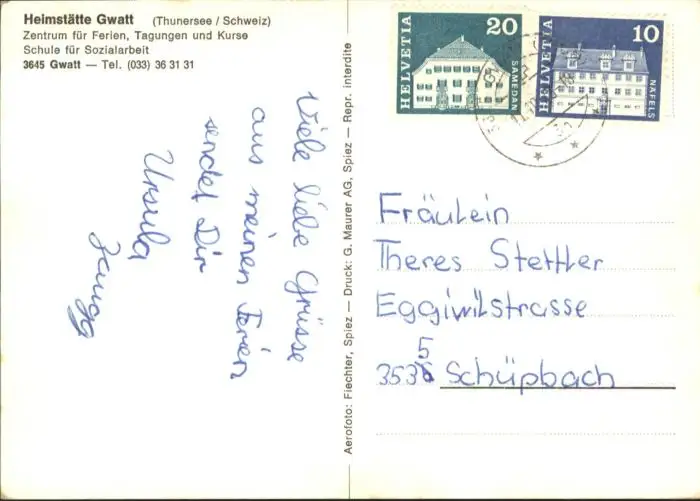 Heimstätte Gwatt (Thunersee / Schweiz)
Zentrum für Ferien, Tagungen und Kurse
Schule für Sozialarbeit
3645 Gwatt — Tel. (033) 36 31 31
Viele liebe Grüsse
aus meinen Ferien
sendet Dir
Ursula
Zaugg
Aerofoto: Flechter, Spiez — Druck: G. Maurer AG, Spiez — Repr. interdite
HELVETIA
20
SAMEDAN
HELVETIA
10
NÄFELS
Fräulein
Theres Stettler
Eggiwilstrasse
5
3536 Schüpbach